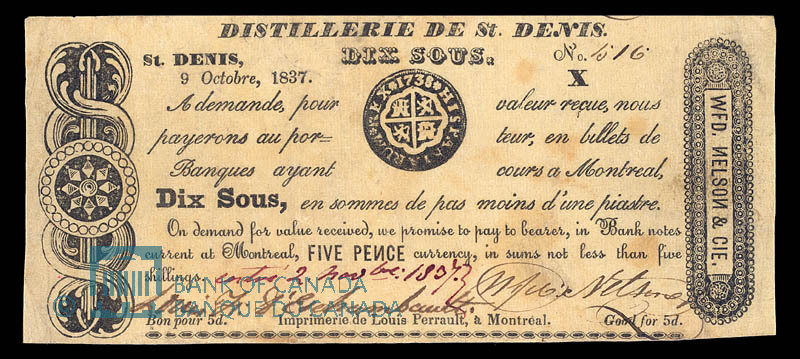 DISTILLERIE DE St. DENIS.
St. DENIS, DIX SOUS. No. 516
9 Octobre, 1837. X
REX * 1738 * HISPANIARUM
A demande, pour valeur reçue, nous
payerons au por= teur, en billets de
Banques ayant cours a Montreal,
Dix Sous, en sommes de pas moins d'une piastre.
On demand for value received, we promise to pay to bearer, in Bank notes
current at Montreal, FIVE PENCE currency, in sums not less than five
shillings. 1837 Nelson
BANK OF CANADA
BANQUE DU CANADA
Bon pour 5d. Imprimerie de Louis Perrault, à Montréal. Good for 5d.
WFD. NELSON & CIE.